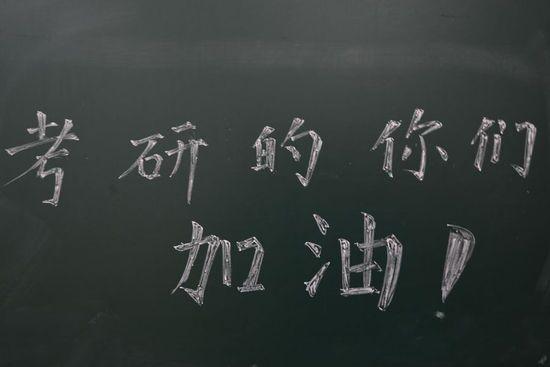 考研的你们
加油!